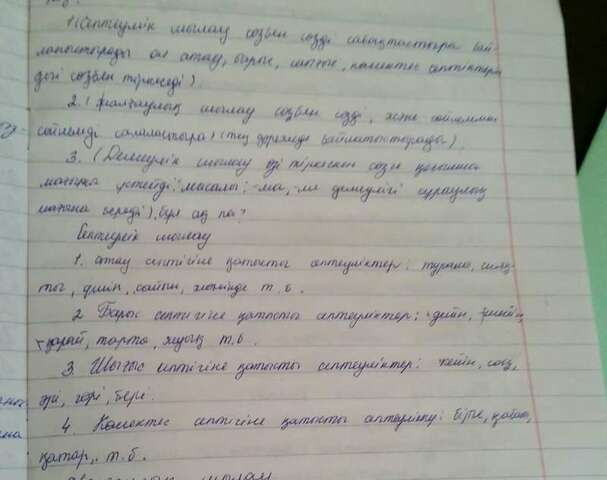 1. (Септеулік шылау сөзбен сөзді сабақтастыра бай-
ланыстырады ол атау, барыс, шығыс, көмектес септіктері
дегі сөзбен тіркеседі).
2. (Жалғаулық шылау сөзбен сөзді, және сөйлеммен
сөйлемді салаластыра) (тең дәрежеде байланыстырады).
3. (Демеулік шылау өзі тіркескен сөзге қосымша
мағына үстейді: мысалы: -ма, -ме демеулігі сұраулық
мағына береді). бұл ақ па?
Септеулік шылау
1. атау септігіне қатысты септеуліктер: туралы, сияқ-
ты, үшін, сайын, жөнінде т. б.
2 Барыс септігіне қатысты септеуліктер: дейін, шейін,
қарай, тарта, жуық т.б.
3. Шығыс септігіне қатысты септеуліктер: кейін, соң,
гөрі, бері.
4. Көмектес септігіне қатысты септеулер: бірге, қабат,
қатар, т. б.
шылау